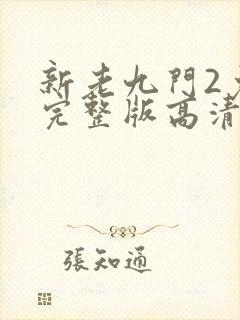 新老九門2
完整版高清
張知通